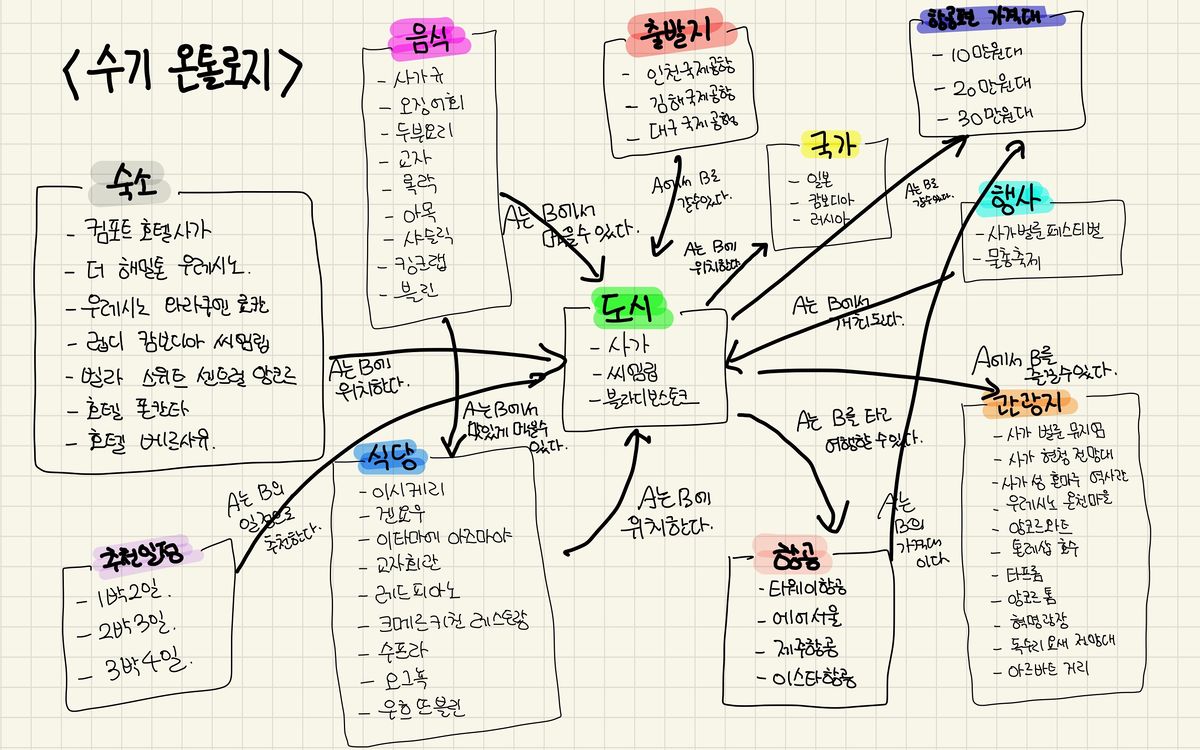 <수기 온톨로지>
음식
- 사가규
- 오징어회
- 두부요리
- 교자
- 록락
- 아목
- 샤슬릭
- 킹크랩
- 블린
출발지
- 인천국제공항
- 김해국제공항
- 대구국제공항
항공편 가격대
- 10만원대
- 20만원대
- 30만원대
국가
- 일본
- 캄보디아
- 러시아
행사
- 사가벌룬페스티벌
- 물총축제
숙소
- 컴포트 호텔사가
- 더 해밀톤 우레시노.
- 우레시노 와라쿠엔 료칸
- 럽디 캄보디아 씨엠립
- 빌라 스위트 센트럴 앙코르
- 호텔 폰탄타
- 호텔 베르사유.
A는 B에서
먹을수 있다.
A에서 B로
갈수있다.
A는 B에
위치한다
A는 B로
갈수있다.
도시
- 사가
- 씨엠립
- 블라디보스토크
A는 B에서
개최된다.
A는 B에
위치한다.
A는 B에서
맛있게 먹을수
있다.
A에서 B를
즐길수있다.
A는 B를 타고
여행할 수있다.
관광지
- 사가 벌룬 뮤지엄
- 사가 현청 전망대
- 사가성 혼마루 역사관
- 우레시노 온천마을
- 앙코르와트
- 톤레삽 호수
- 타프롬
- 앙코르 톰
- 혁명광장
- 독수리 요새 전망대
- 아르바트 거리
식당
- 이시케리
- 겐요우
- 이타마에 아즈마야
- 교자회관
- 레드피아노
- 크메르키친 레스토랑
- 수프라
- 오그뇩
- 우흐 뜨 블린
A는 B의
일정으로
추천한다.
추천일정
- 1박2일.
- 2박3일.
- 3박4일.
A는 B에
위치한다.
항공
- 티웨이항공
- 에어서울
- 제주항공
- 이스타항공
A는
B의
가격대
이다.